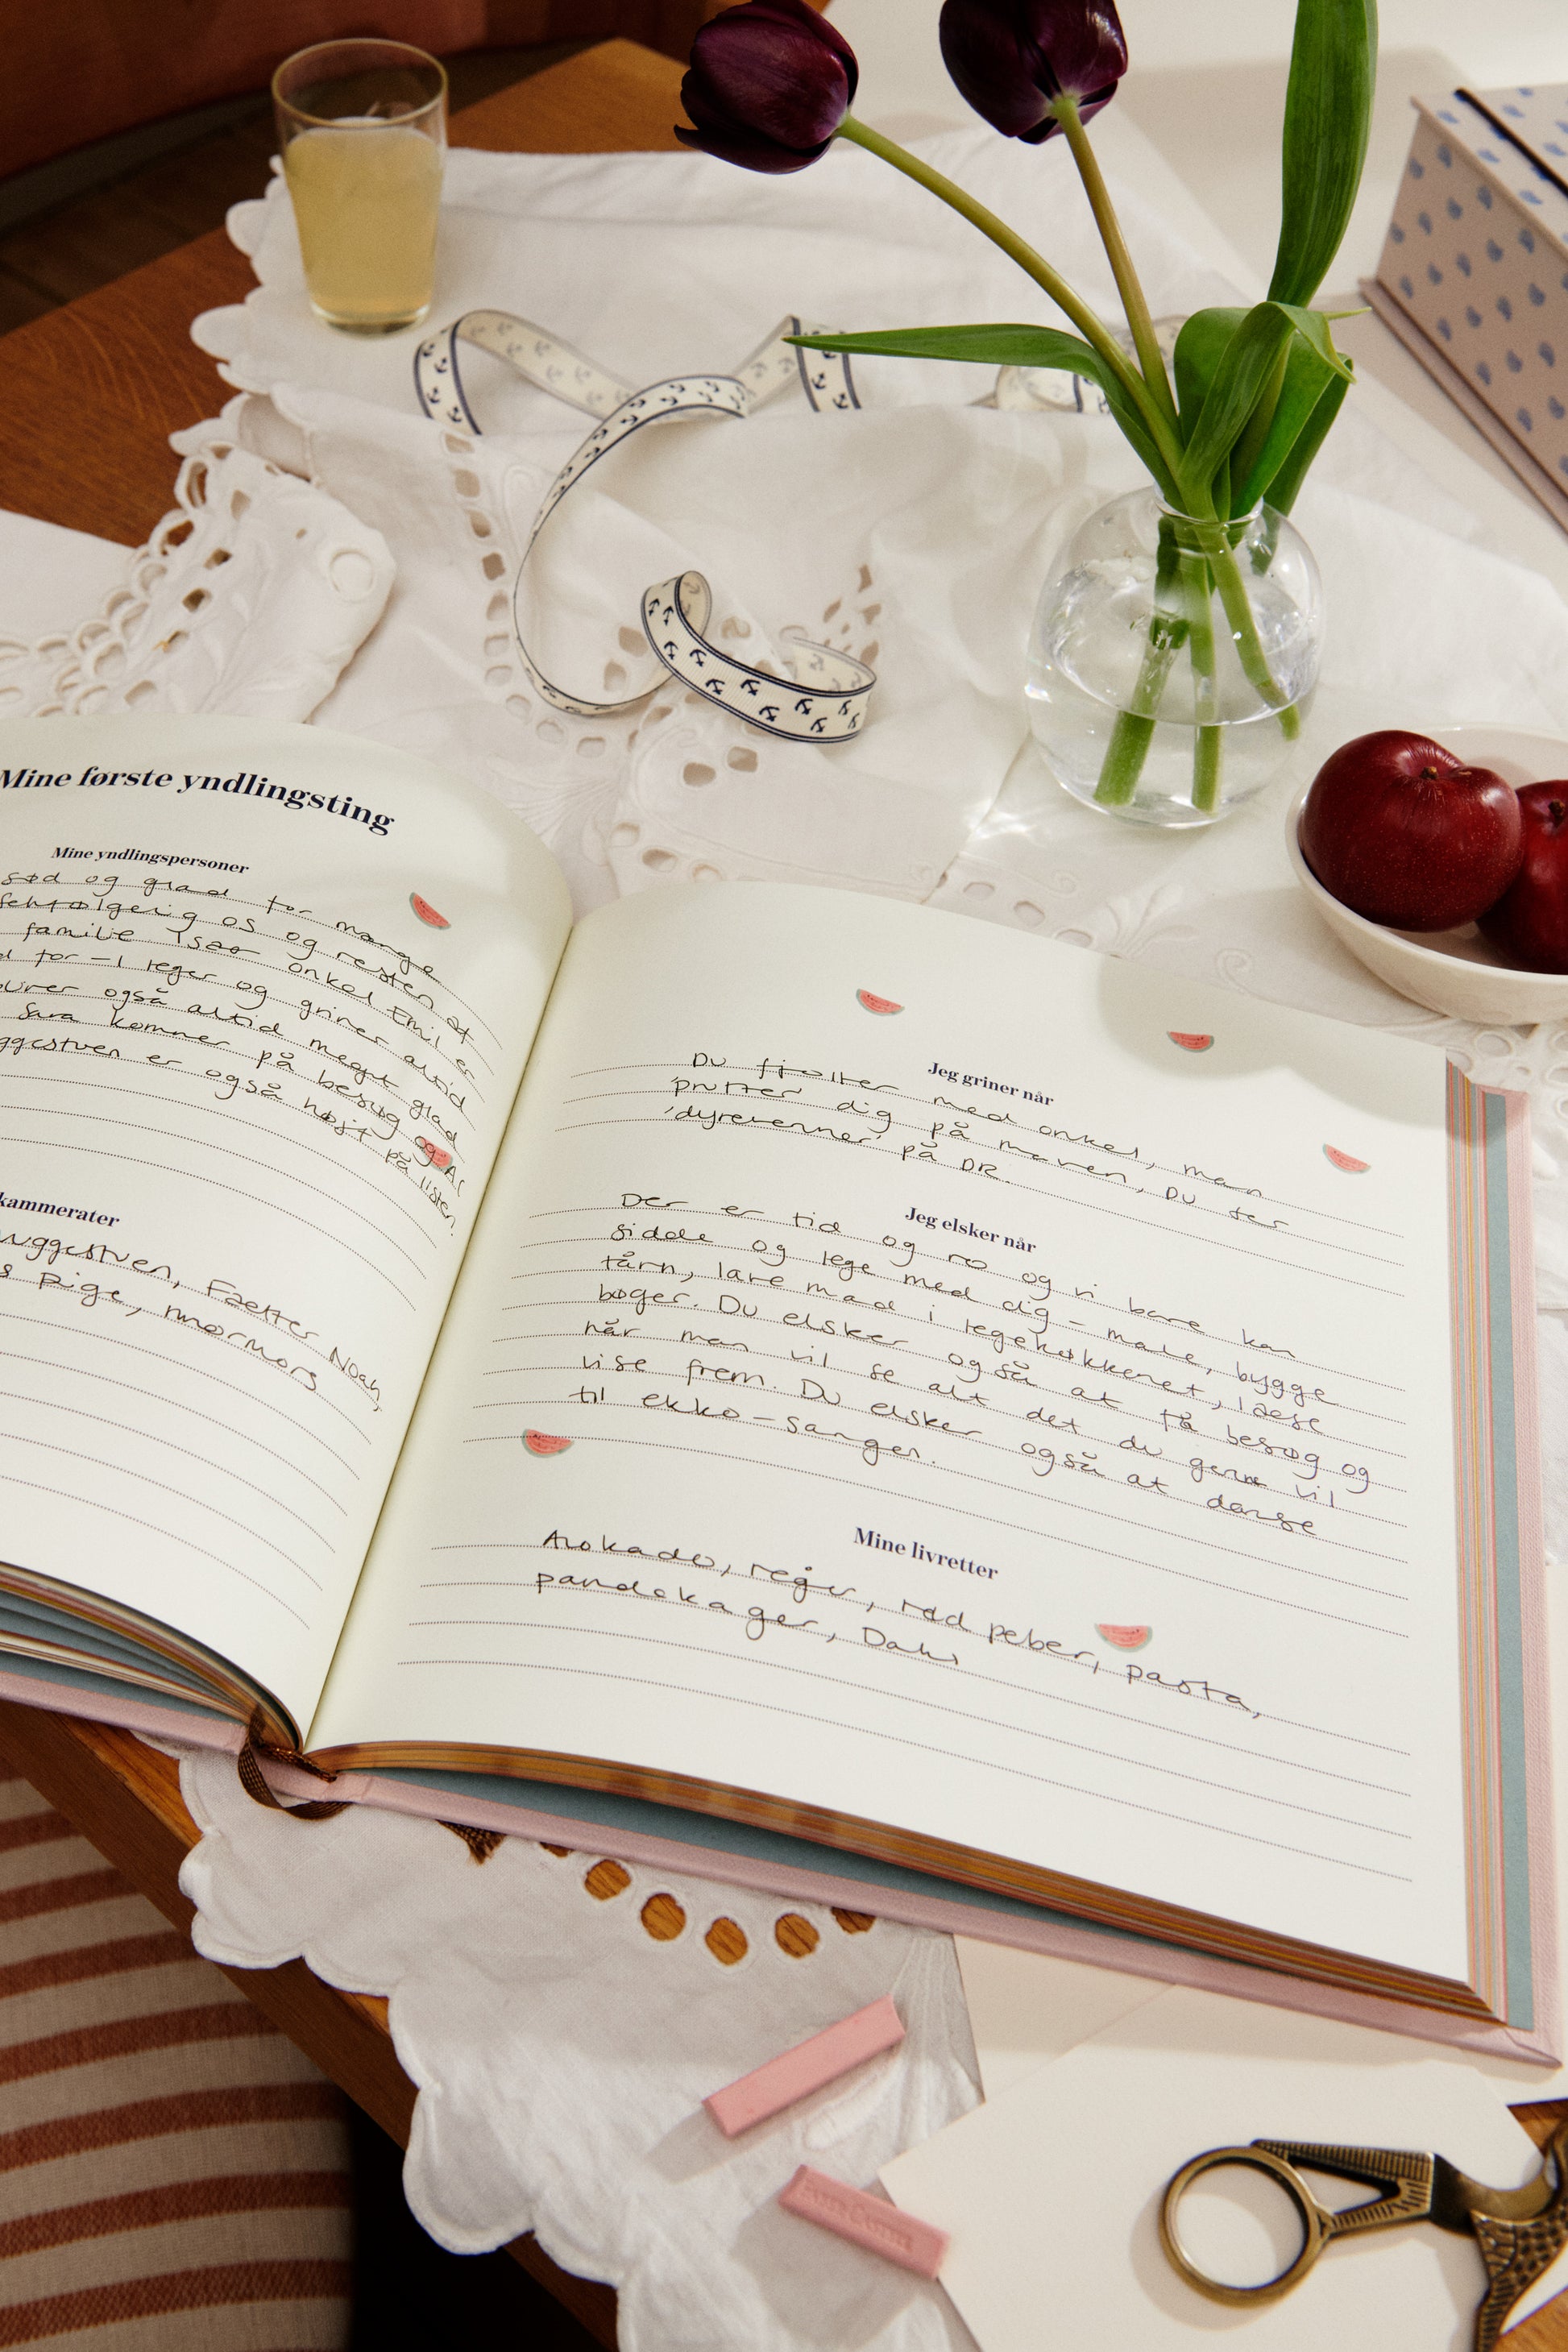 Mine første yndlingsting
Mine yndlingspersoner
sød og glad for mange
selvfølgelig os og resten af
familie. Især onkel Emil er
for – I leger og griner altid
også altid meget glad
Sara kommer på besøg og
er også højt på listen.
kammerater
Fætter Noah,
Pige, mormors
Jeg griner når
Du fjoller med onkel, man
prutter dig på maven, Du ser
'dyrevenner' på DR.
Jeg elsker når
Der er tid og ro og vi bare kan
sidde og lege med dig – male, bygge
tårn, lave mad i legekøkkenet, læse
bøger. Du elsker også at få besøg og
når man vil se alt det du gerne vil
vise frem. Du elsker også at danse
til ekko-sangen.
Mine livretter
Avokado, rejer, rød peber, pasta,
pandekager, Dahl